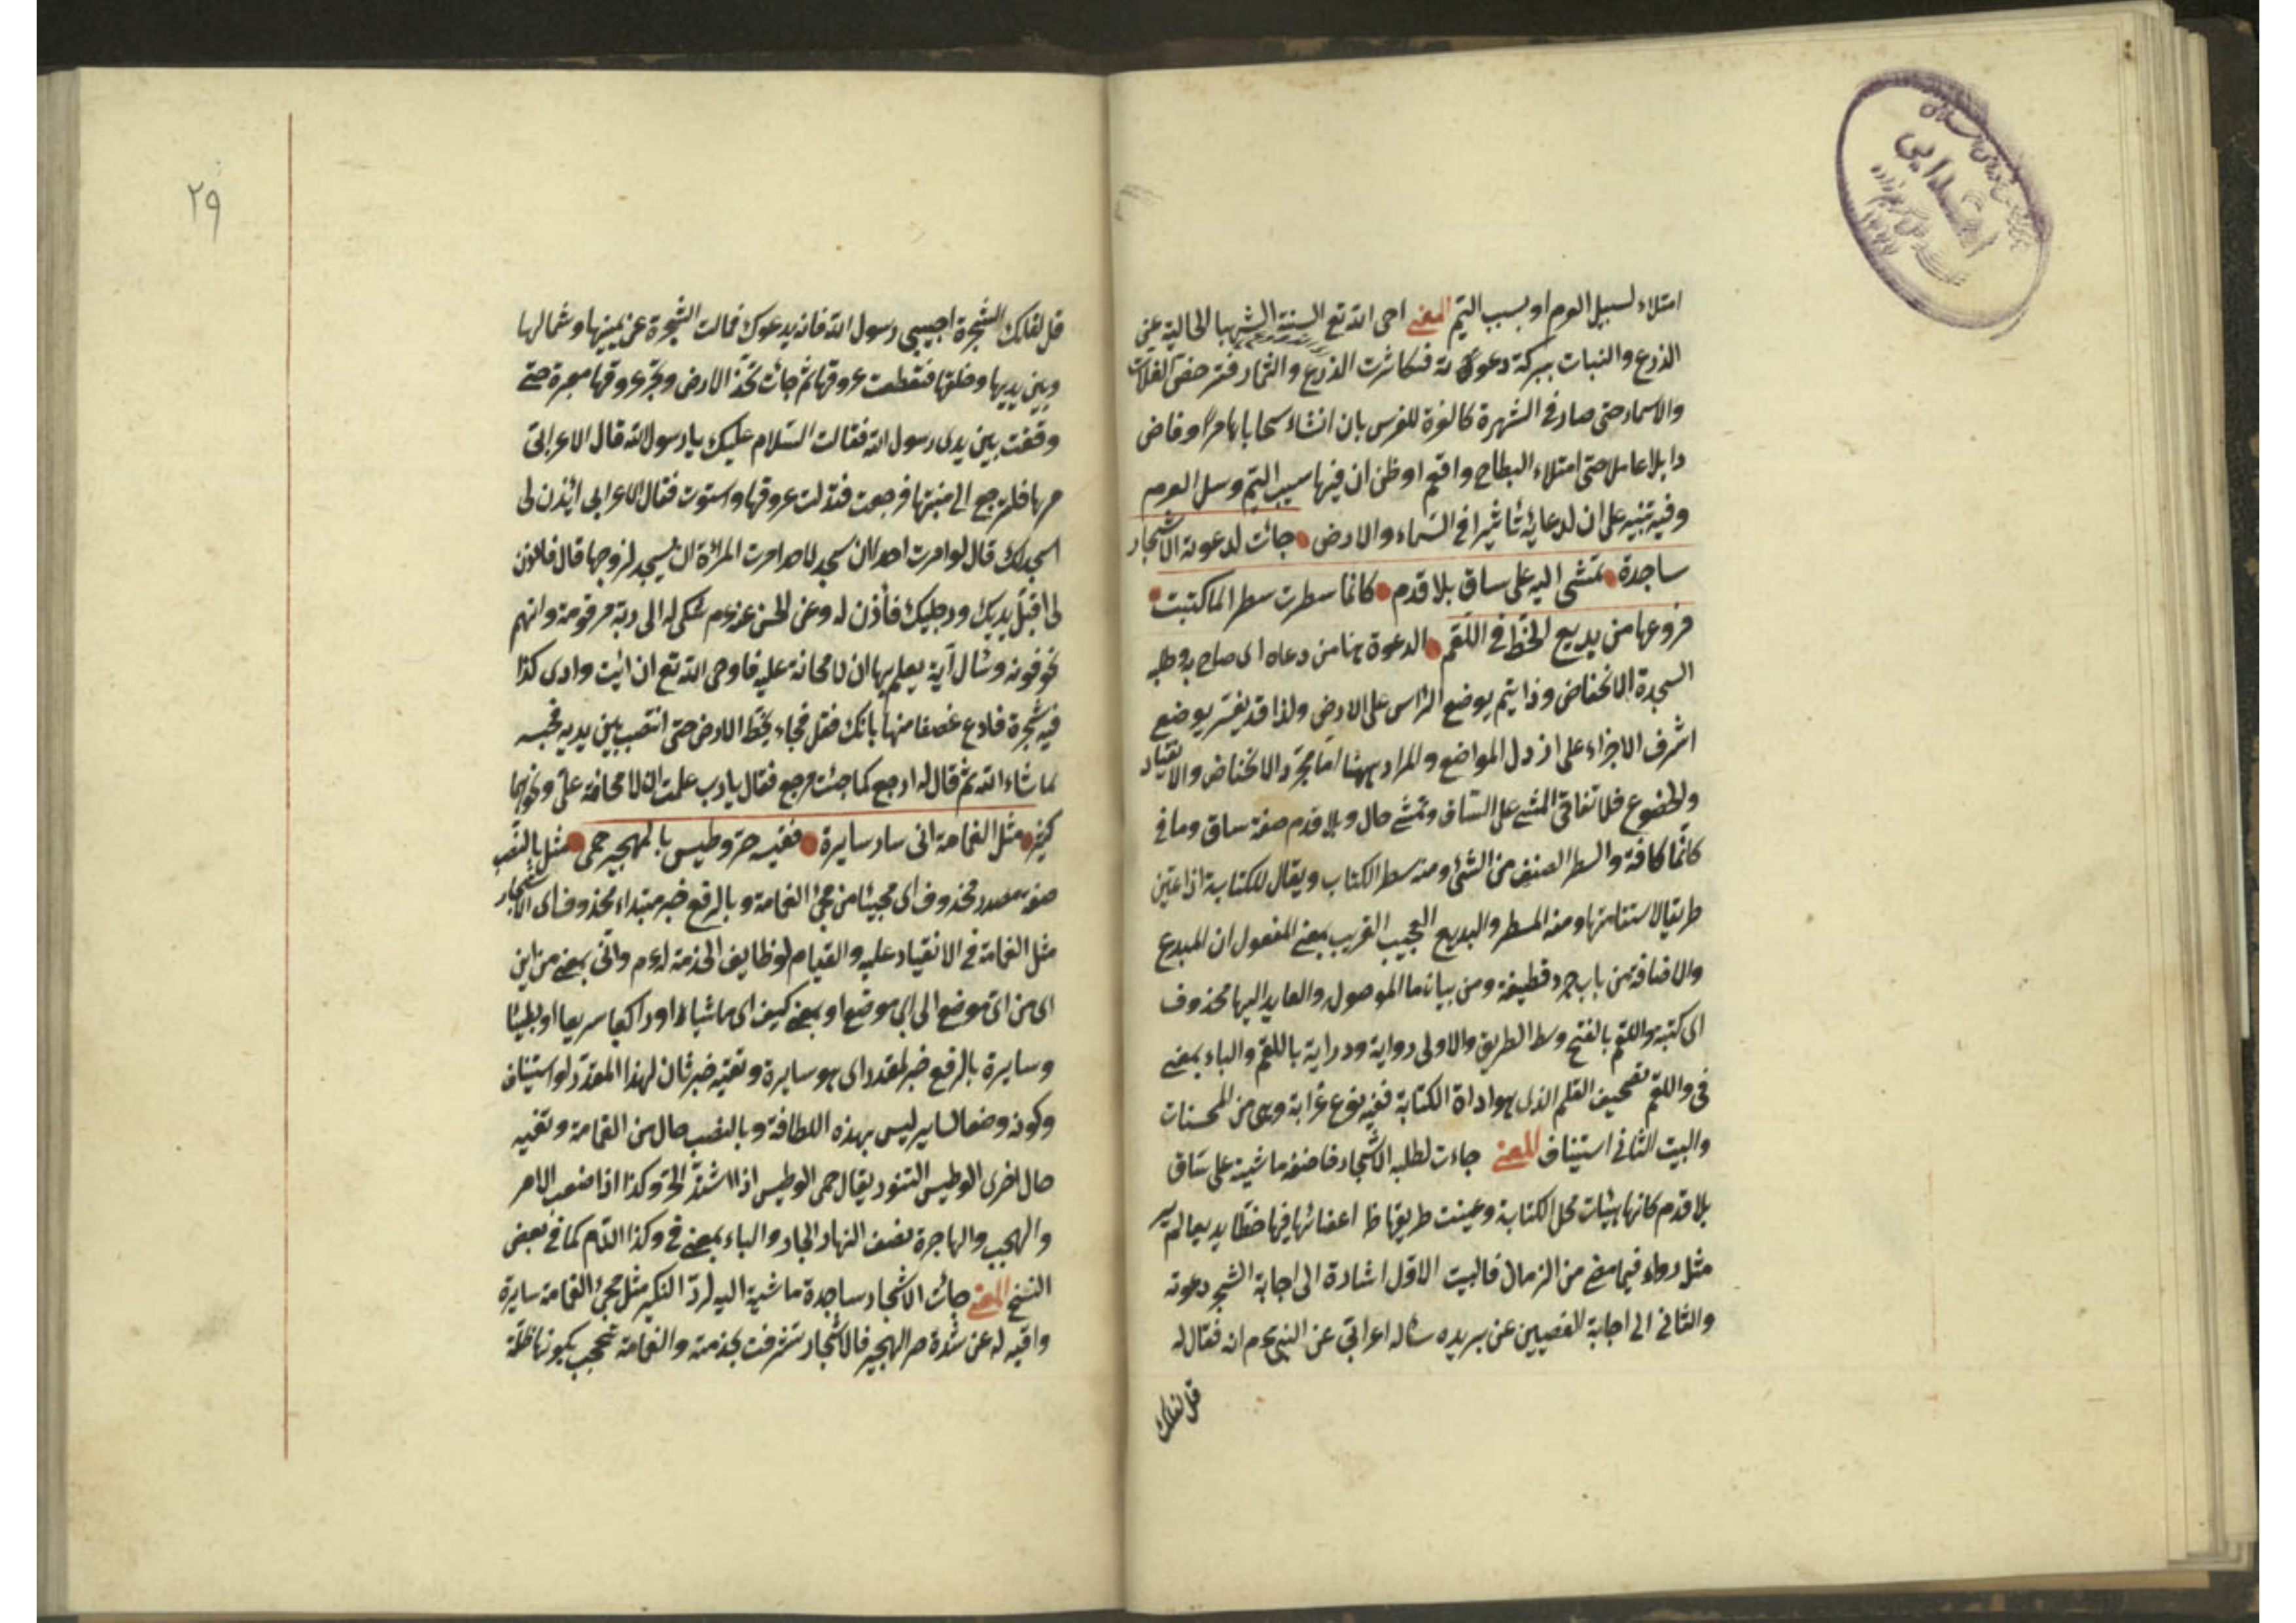 امتلاء لسبيل العرم او بسبب اليم المعنى احى الله تع السنة الشهبا الخالية عن
الزرع والنبات ببركة دعوته فتكاثرت الزرع والثمار فتر خص الغلات
والاسعار حتى صار في الشهرة كالغرة للفرس بان انشاء سحابا هامرا وفاض
وابلا عاملا حتى امتلاء البطاح واقيم او ظن ان فيها سيب اليم وسل العرم
وفيه تنبيه على ان لدعائه تأثيرا في السماء والارض جائت لدعوته الاشجار
ساجدة تمشى اليه على ساق بلا قدم كانما سطرت سطرا لما كتبت
فروعها من بديع الخط في اللقم الدعوة هنا من دعاه اى صاح به وطلبه
السجدة الانخفاض وذا يتم بوضع الراس على الارض ولذا قد يفسر بوضع
اشرف الاجزاء على ارذل المواضع والمراد ههنا اما مجرد الانخفاض والانقياد
والخضوع فلا تفاقى المشى على الساق وتمشى حال وبلا قدم صفة ساق وما في
كانما كافة والسطر الصنف من الشئ ومنه سطر الكتاب ويقال للكتابة اذا عين
طريقا لاستقامتها ومنه المسطر والبديع العجيب الغريب بمعنى المفعول ان المبدع
والاضافة من باب جرد قطيفة ومن بيان ما الموصول والعايد اليها محذوف
اى كتبه واللقم بالفتح وسط الطريق والاولى رواية ودراية باللقم والباء بمعنى
في واللقم تصحيف القلم الذى هو اداة الكتابة ففيه نوع غرابة وهى من المحسنات
والبيت الثانى استيناف المعنى جاءت لطلبه الاشجار خاضعة ماشية على ساق
بلا قدم كانها هيئات محل الكتابة وعينت طريقها خط اعضائها فيها خطا بديعا لم ير
مثل رواه فيما مضى من الزمان فالبيت الاول اشارة الى اجابة الشجر دعوته
والثانى الى اجابة الغصين عن بريده سأله اعرابى عن النبى عم انه فقال له
قل لتلك
٢٩
قل لتلك الشجرة اجيبى رسول الله فانه يدعوك فمالت الشجرة عن يمينها وشمالها
وبين يديها وخلفها فتقطعت عروقها ثم جائت تخذ الارض وتجر عروقها مجرة حتى
وقفت بين يدى رسول الله فقالت السلام عليك يا رسول الله قال الاعرابى
مرها فلترجع الى منبتها فرجعت فتدلت عروقها واستوت فقال الاعرابى ائذن لى
اسجد لك قال لو امرت احدا ان يسجد لاحد امرت المرأة ان يسجد لزوجها قال فاذن
لى اقبل يديك ورجليك فأذن له وعن الحسن عنه عم شكى له الى ربه مرقومه وانهم
تخوفونه وسأل آية يعلم بها ان لا مخافة عليه فاوحى الله تع ان ائت وادى كذا
فيه شجرة فادع غصنا منها يأتك ففعل فجاء يخط الارض حتى انتصب بين يديه فحبسه
ما شاء الله ثم قال له ارجع كما جئت فرجع فقال يا رب علمت ان لا مخافة على ونحوهما
كثير مثل الغمامة انى سار سايرة تقيه حر وطيس بالهجير حمى مثل بالنصب
صفة مصدر محذوف اى مجيئا من مجئ الغمامة وبالرفع خبر مبتداء محذوف اى الاشجار
مثل الغمامة في الانقياد عليه والقيام لوظايف الخدمة له عم وانى بمعنى من اين
اى من اى موضع الى اى موضع او بمعنى كيف اى ماشيا او راكبا سريعا او بطيئا
وسايرة بالرفع خبر لمقدر اى هو سايرة وتقيه خبر ثان لهذا المقدر لو استيناف
وكونه وصفا لساير ليس بهذه اللطافة وبالنصب حال من الغمامة وتقيه
حال اخرى الوطيس التنور يقال حمى الوطيس اذا اشتد الحر وكذا اذا صعب الامر
والهجير والهاجرة نصف النهار الحار والباء بمعنى في وكذا اللام كما في بعض
النسخ المعنى جائت الاشجار ساجدة ماشية اليه لرد النكير مثل مجئ الغمامة سايرة
واقيه له عن شدة حر الهجير فالاشجار تشرفت بخدمته والغمامة تحجب بكونها ظلة